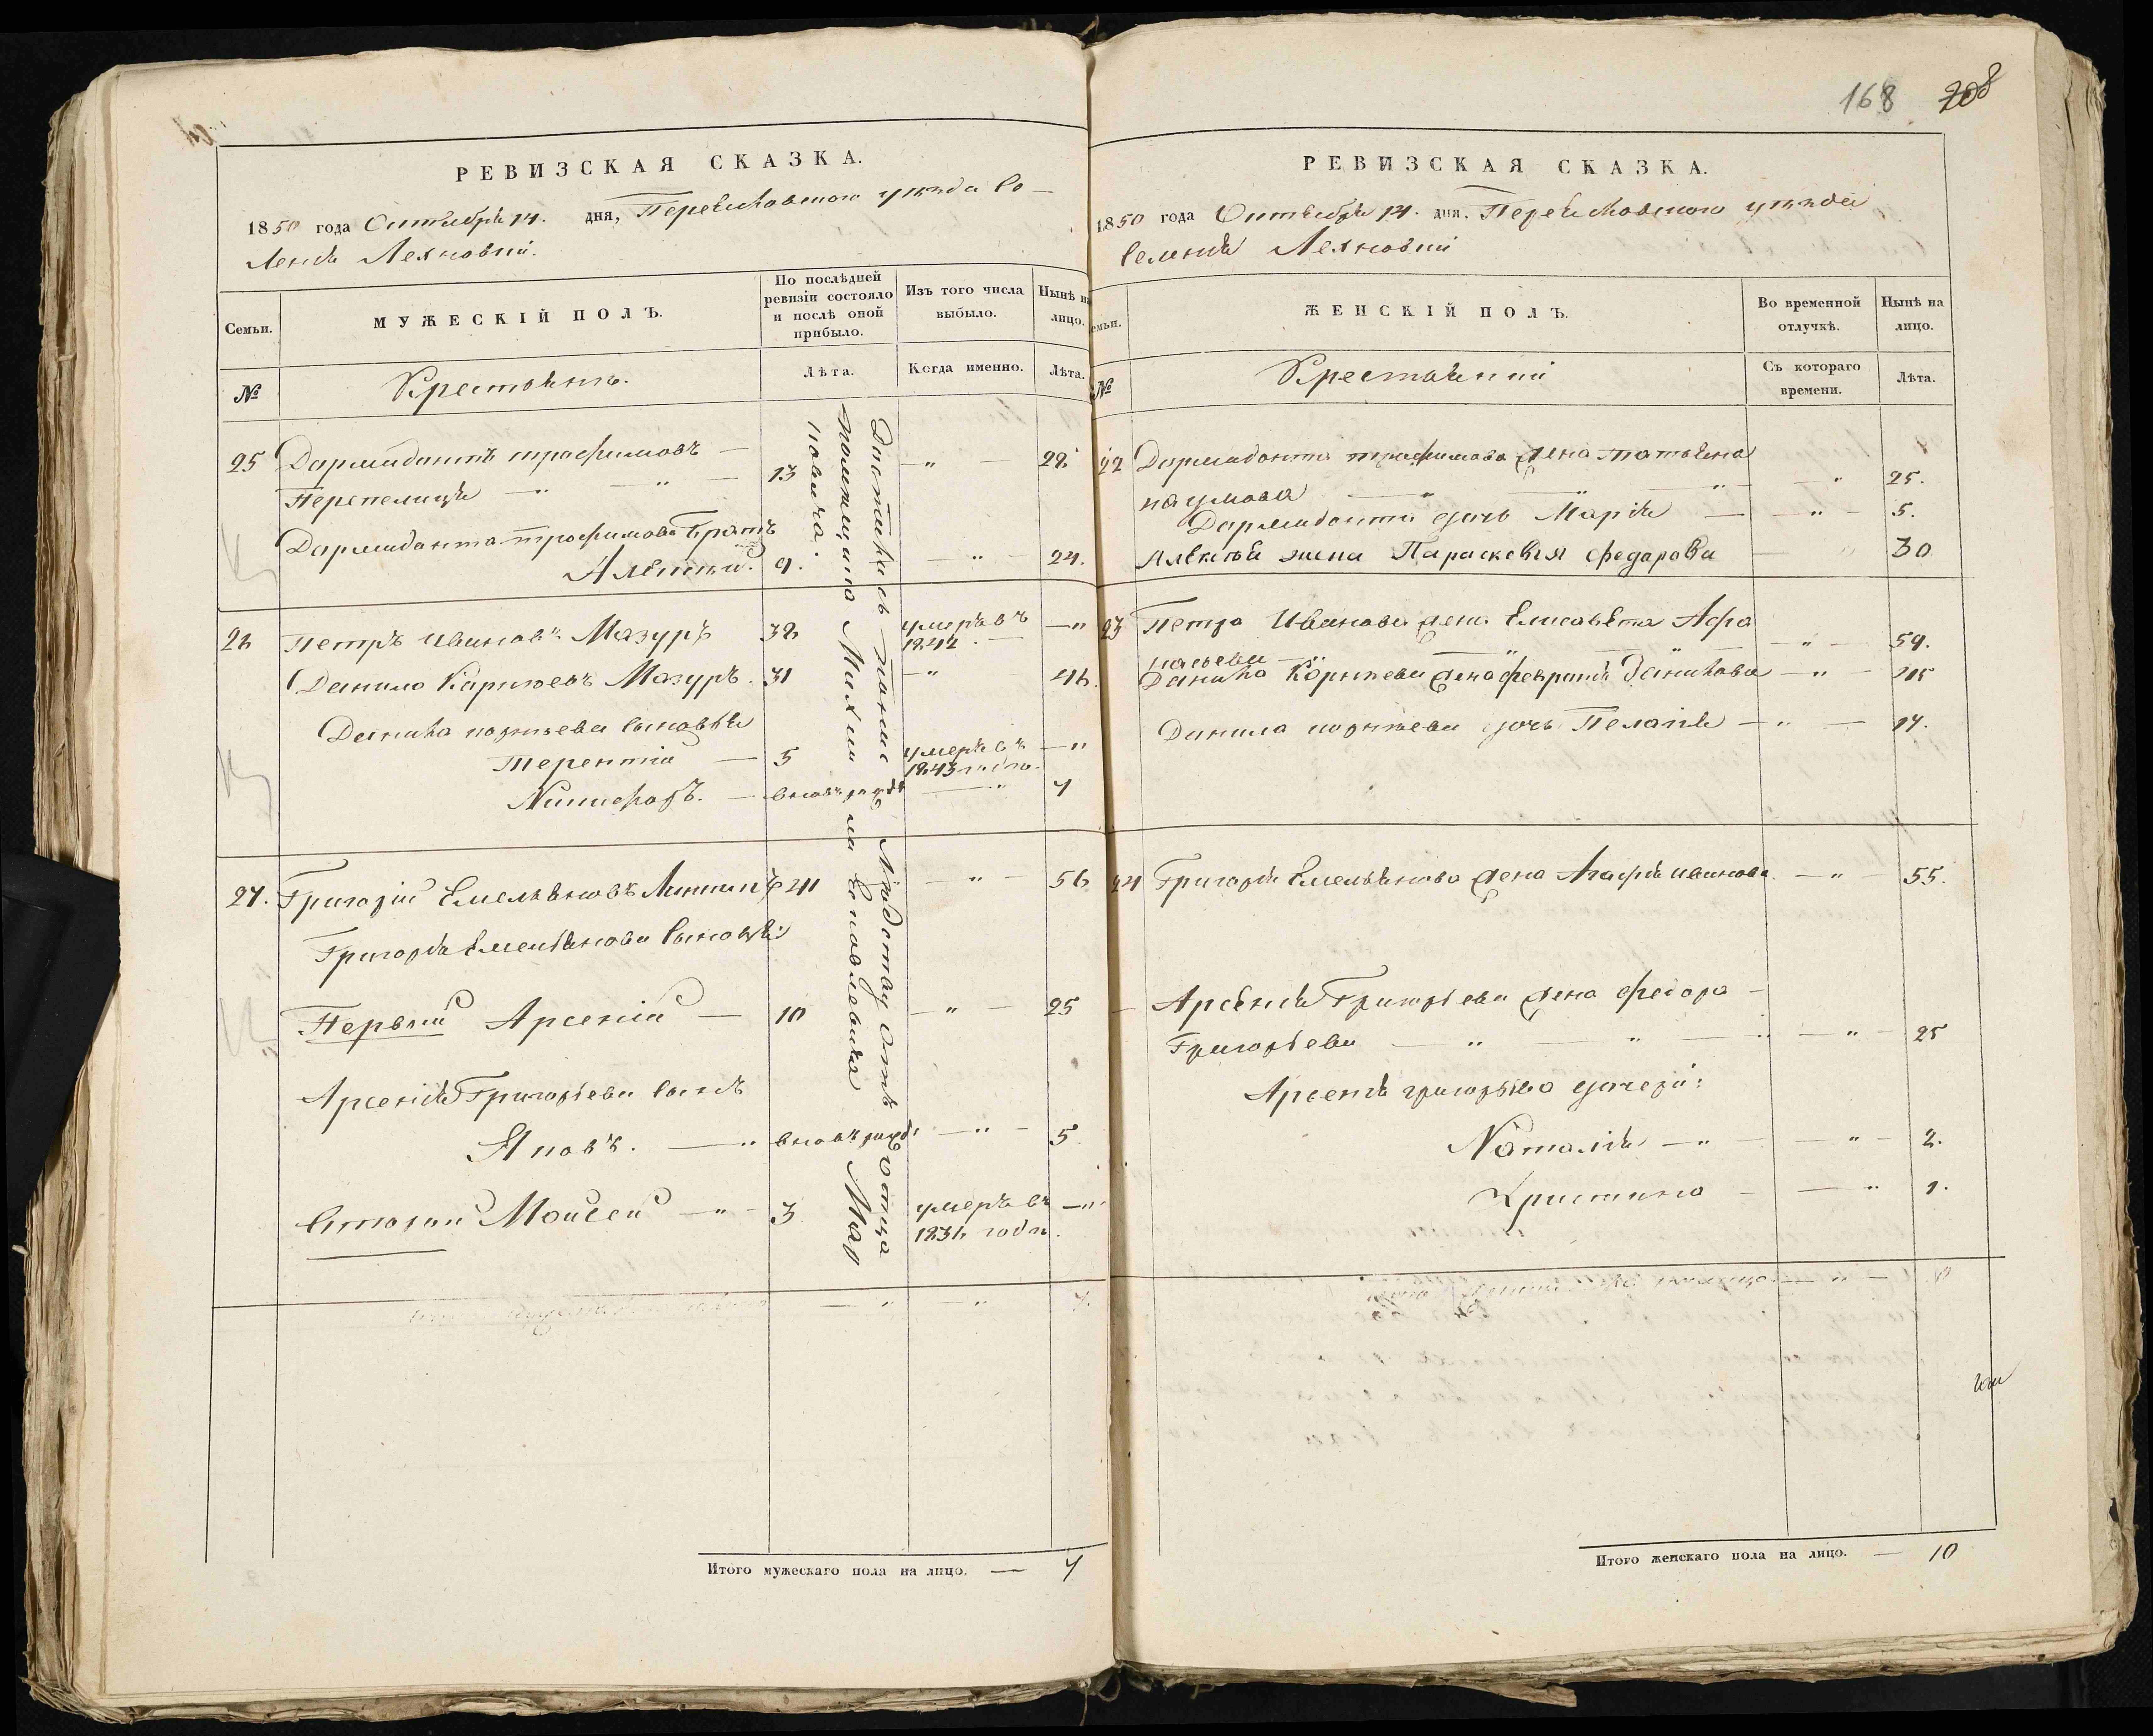 168 208
РЕВИЗСКАЯ СКАЗКА.
1850 года Октября 14. дня, Переяславскаго уезда се-
ленія Лехновки.
Семьи.
МУЖЕСКІЙ ПОЛЪ.
По послѣдней
ревизіи состояло
и послѣ оной
прибыло.
Изъ того числа
выбыло.
Нынѣ на
лицо.
№
Крестьянъ.
Лѣта.
Когда именно.
Лѣта.
25 Дармидонтъ трофимовъ — — " — 29.
Перепелиця — " — " — 13
Дармидонта трофимова Братъ
Алексѣй. 9. — " — 24.
26 Петръ Ивановъ Мазуръ 38 умеръ въ — "
1842. —
Данило Карнѣевъ Мазуръ. 31 — " 46.
Данила корнѣева сыновья
Терентій — 5 умеръ въ — "
1843 году.
Никифоръ. — вновь рожд: — " 7
27. Григорій Емельяновъ 41 — " — 56
Григорія Емельянова сыновья:
Первый Арсеній — 10 — " — 25
Арсенія Григорьева сынъ
Яковъ. — " вновь рожд: — " — 5
Вторый Моисей — " — 3 умеръ въ — "
1836 годѣ.
— " — " 7.
Достались по наследству отъ отца
помещика Михаила Мар
новича.
Итого мужескаго пола на лицо. — 7
РЕВИЗСКАЯ СКАЗКА.
1850 года Октября 14. дня. Переяславскаго уезда
селенія Лехновки
Семьи.
ЖЕНСКІЙ ПОЛЪ.
Во временной
отлучкѣ.
Нынѣ на
лицо.
№
Крестьянки
Съ котораго
времени.
Лѣта.
22 Дармидонта трофимова жена татьяна
наумова — " — " — " — " 25.
Дармидонта дочь Марія — — " — 5.
Алексѣя жена Параскевія Федарова — " 30
23 Петра Иванова жена Елисавета Афа
насьева — " — " — 59.
Данила Корнѣева жена феврония Данилова — " — 45
Данила корнѣева дочь Пелагія — " — 14.
24 Григорія Емельянова жена Агафія иванова — " — 55.
— Арсенія Григорьева жена федора —
Григорьева — " — " — " — " — 25
Арсенія григорьева дочери:
Наталія — " — " — 2.
Христина — — " 1.
Итого женскаго пола на лицо. — 10